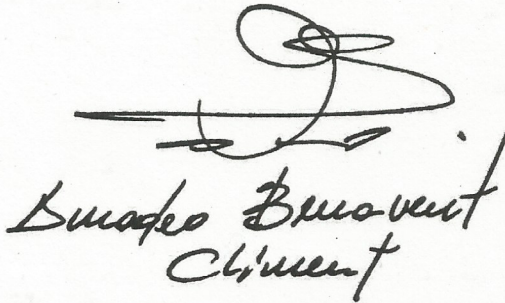 Amadeo Benavent
Climent